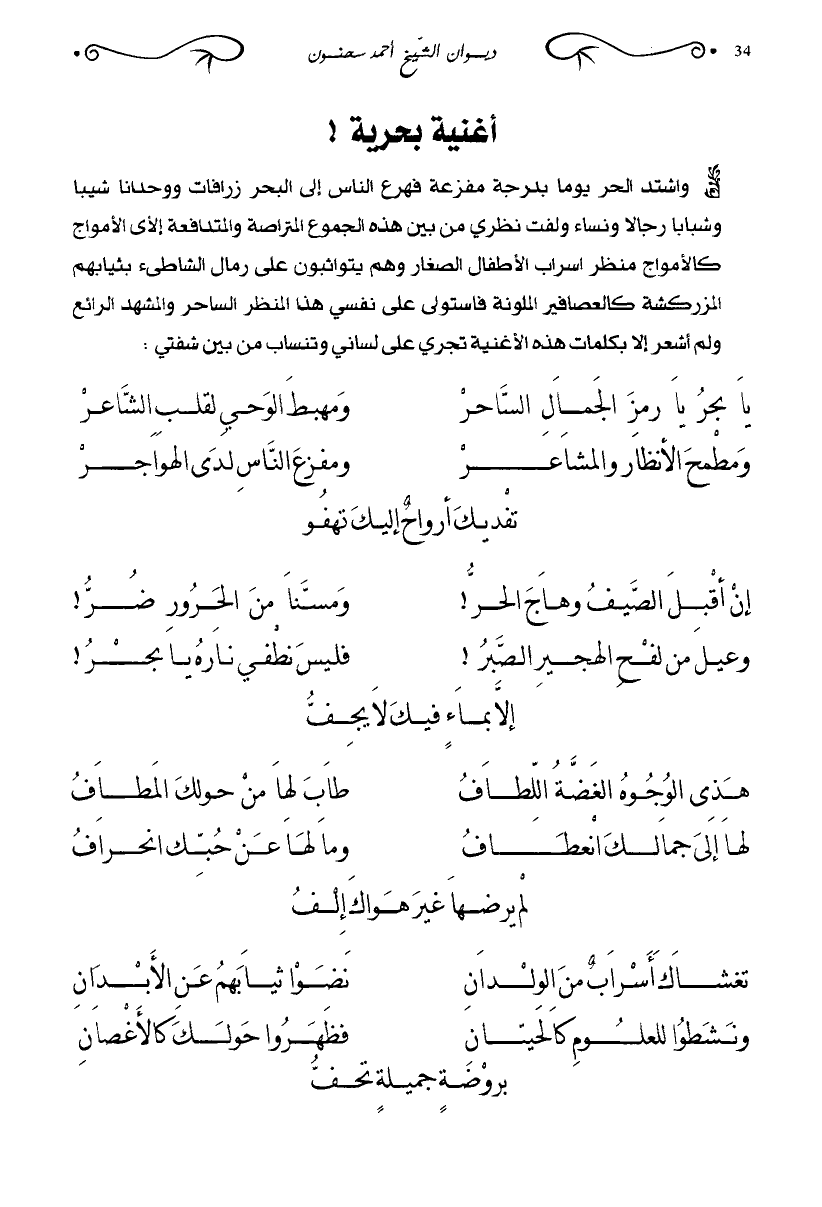 34 ديوان الشيخ أحمد سحنون
أغنية بحرية !
واشتد الحر يوما بدرجة مفزعة فهرع الناس إلى البحر زرافات ووحدانا شيبا
وشبابا رجالا ونساء ولفت نظري من بين هذه الجموع المتراصة والمتدافعة إلأى الأمواج
كالأمواج منظر اسراب الأطفال الصغار وهم يتواثبون على رمال الشاطىء بثيابهم
المزركشة كالعصافير الملونة فاستولى على نفسي هذا المنظر الساحر والمشهد الرائع
ولم أشعر إلا بكلمات هذه الأغنية تجري على لساني وتنساب من بين شفتي :
يَا بحرُ يَا رمزَ الجَمَالِ السَّاحرْ ومَهبطَ الوَحيِ لقلبِ الشَّاعرْ
وَمطْمحَ الأنظَارِ والمشَاعرْ ومفزعَ النَّاسِ لدَى الهوَاجرْ
تفْديكَ أرواحٌ إليكَ تهفُو
إنْ أقْبلَ الصَّيفُ وهَاجَ الحرُّ! وَمسَّنَا منَ الحَرُورِ ضُرُّ!
وعيلَ من لفْحِ الهجيرِ الصَّبرُ! فليسَ نطْفي نارهُ يا بحْرُ!
إلاَّ بمَاءٍ فيكَ لاَ يجِفُّ
هَذِي الوُجُوهُ الغَضَّةُ اللّطَافُ طابَ لهَا منْ حولكَ المَطَافُ
لهَا إلَى جمَالِكَ انْعطَافُ ومَا لهَا عَنْ حُبّكِ انحرَافُ
لم يرضهَا غيرَ هَوَاكَ إلْفُ
تغشَاكَ أَسْرَابٌ منَ الولْدَانِ نَضَوْا ثيَابَهمُ عَنِ الأَبْدَانِ
ونَشَطُوا للعلُومِ كالحيتَانِ فظهَرُوا حَولَكَ كَالأَغْصَانِ
بروْضَةٍ جميلَةٍ تحفُّ